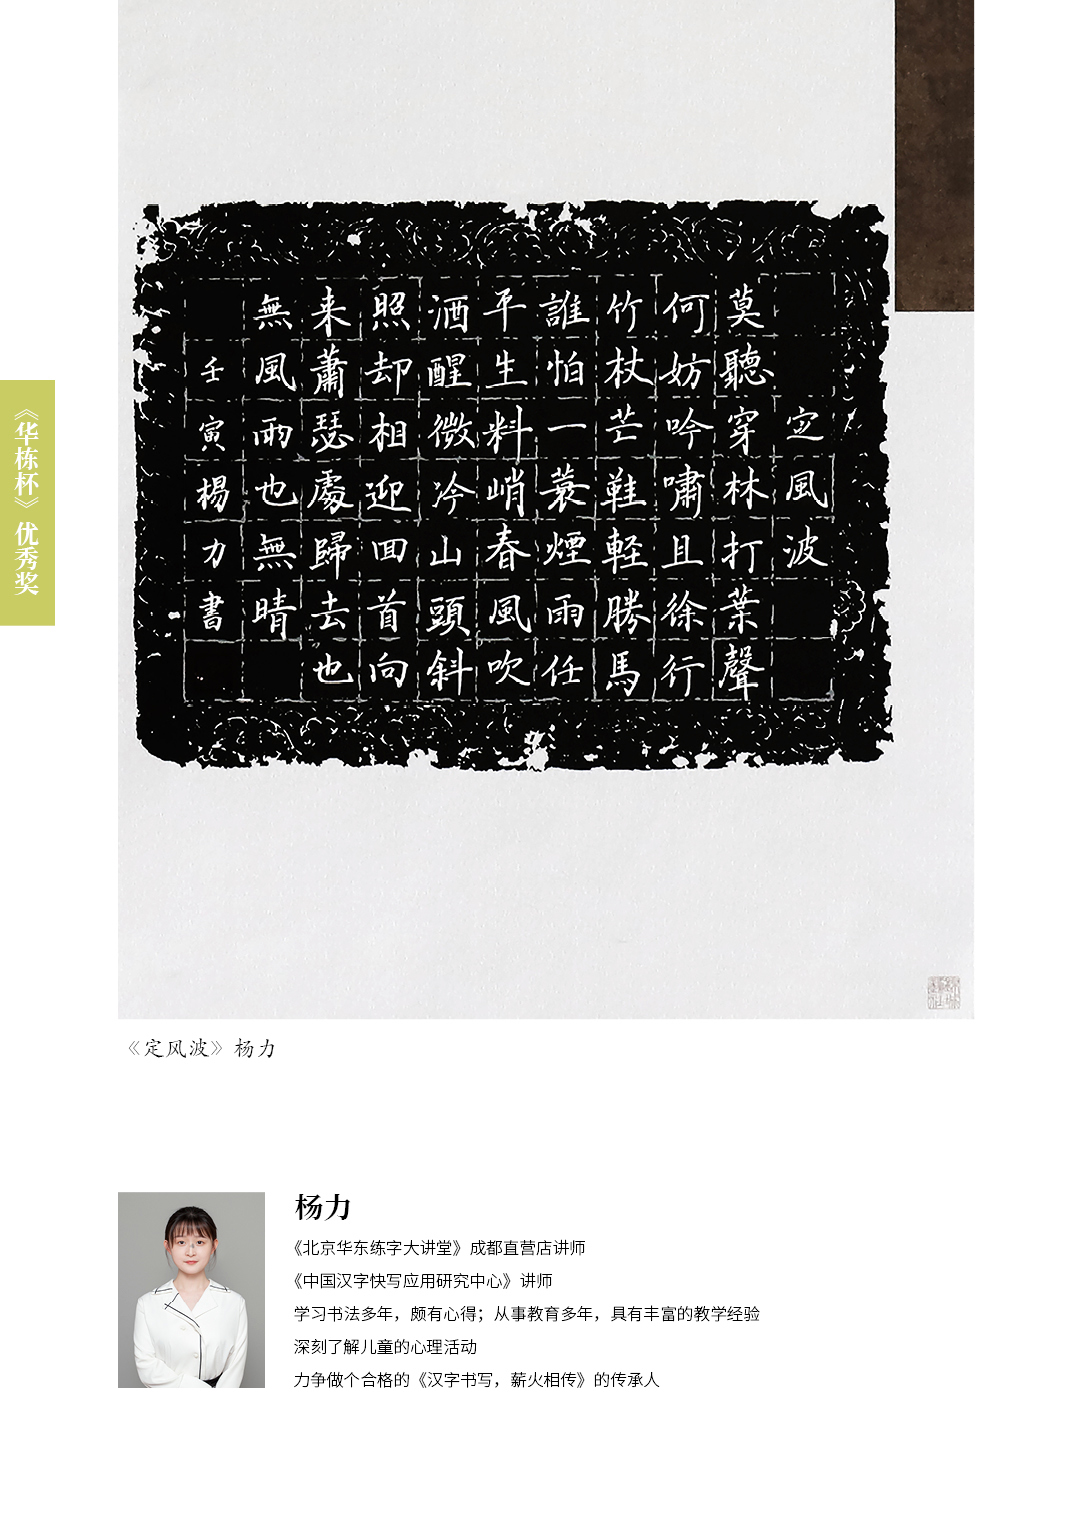 《华栋杯》优秀奖
定風波
莫聽穿林打葉聲
何妨吟嘯且徐行
竹杖芒鞋軽勝馬
誰怕一蓑煙雨任
平生料峭春風吹
酒醒微冷山頭斜
照却相迎回首向
来蕭瑟處歸去也
無風雨也無晴
壬寅楊力書
《定风波》杨力
杨力
《北京华东练字大讲堂》成都直营店讲师
《中国汉字快写应用研究中心》讲师
学习书法多年，颇有心得；从事教育多年，具有丰富的教学经验
深刻了解儿童的心理活动
力争做个合格的《汉字书写，薪火相传》的传承人